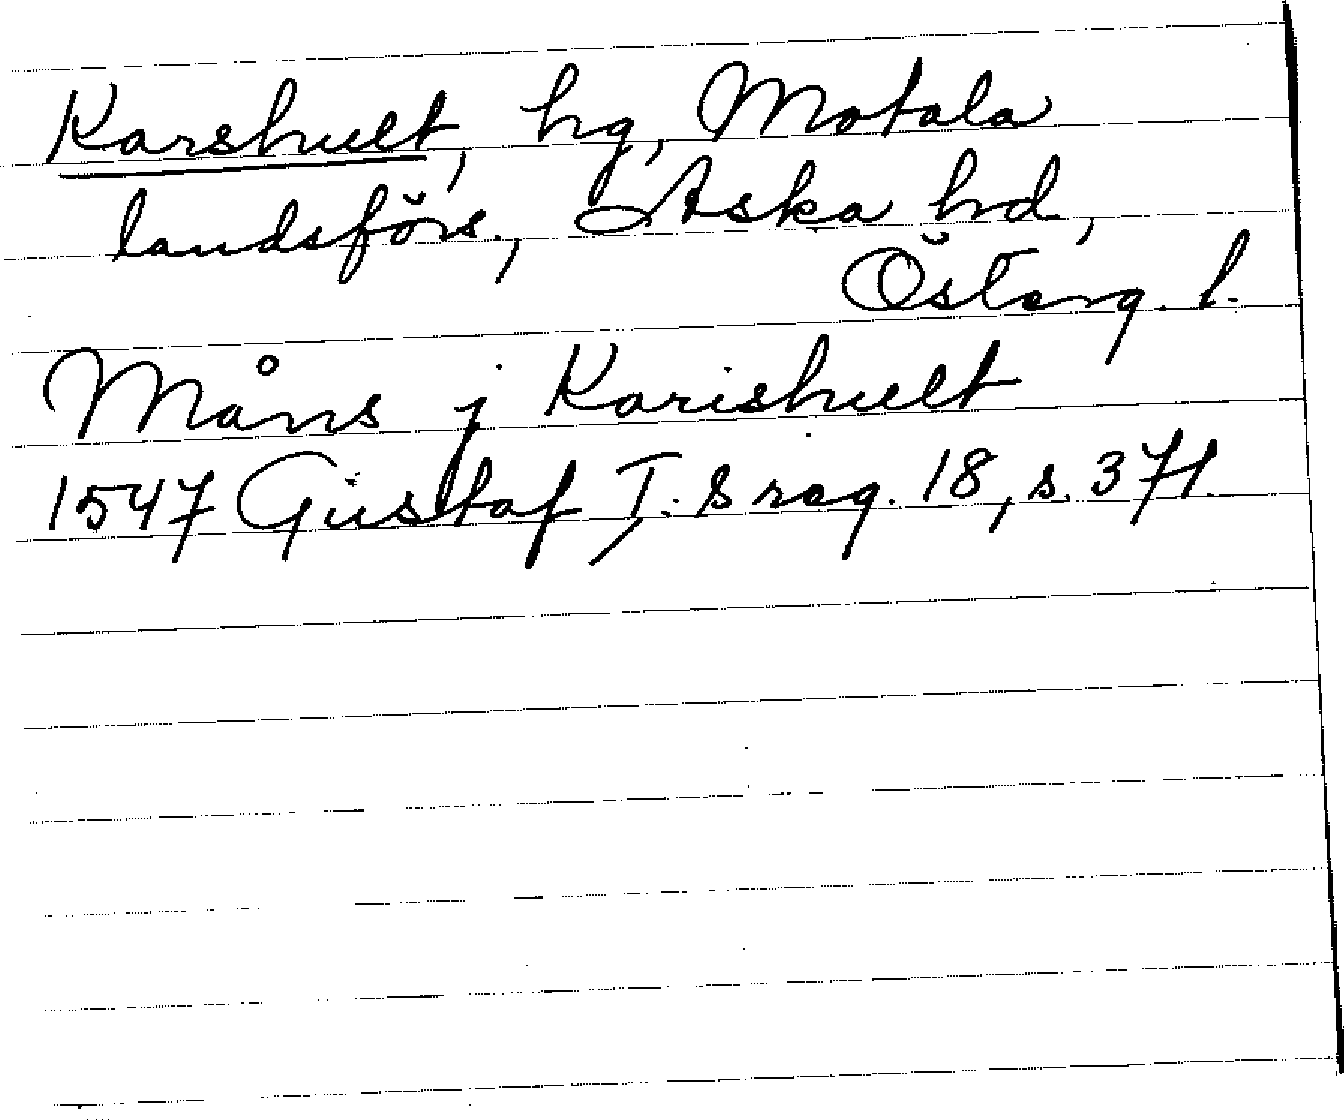 Karshult, hg, Motala
landsförs., Aska hd,
Österg. l.
Måns j Karishult
1547 Gustaf I:s reg. 18, s. 371.